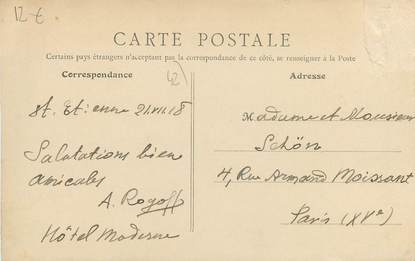 12 €
CARTE POSTALE
Certains pays étrangers n'acceptant pas la correspondance de ce côté, se renseigner à la Poste
Correspondance
42
Adresse
St. Etienne 21.VII.18
Salutations bien
amicales
A. Rogoff
Hôtel Moderne
Madame et Monsieur
Schön
4, Rue Armand Moissant
Paris (XVe)